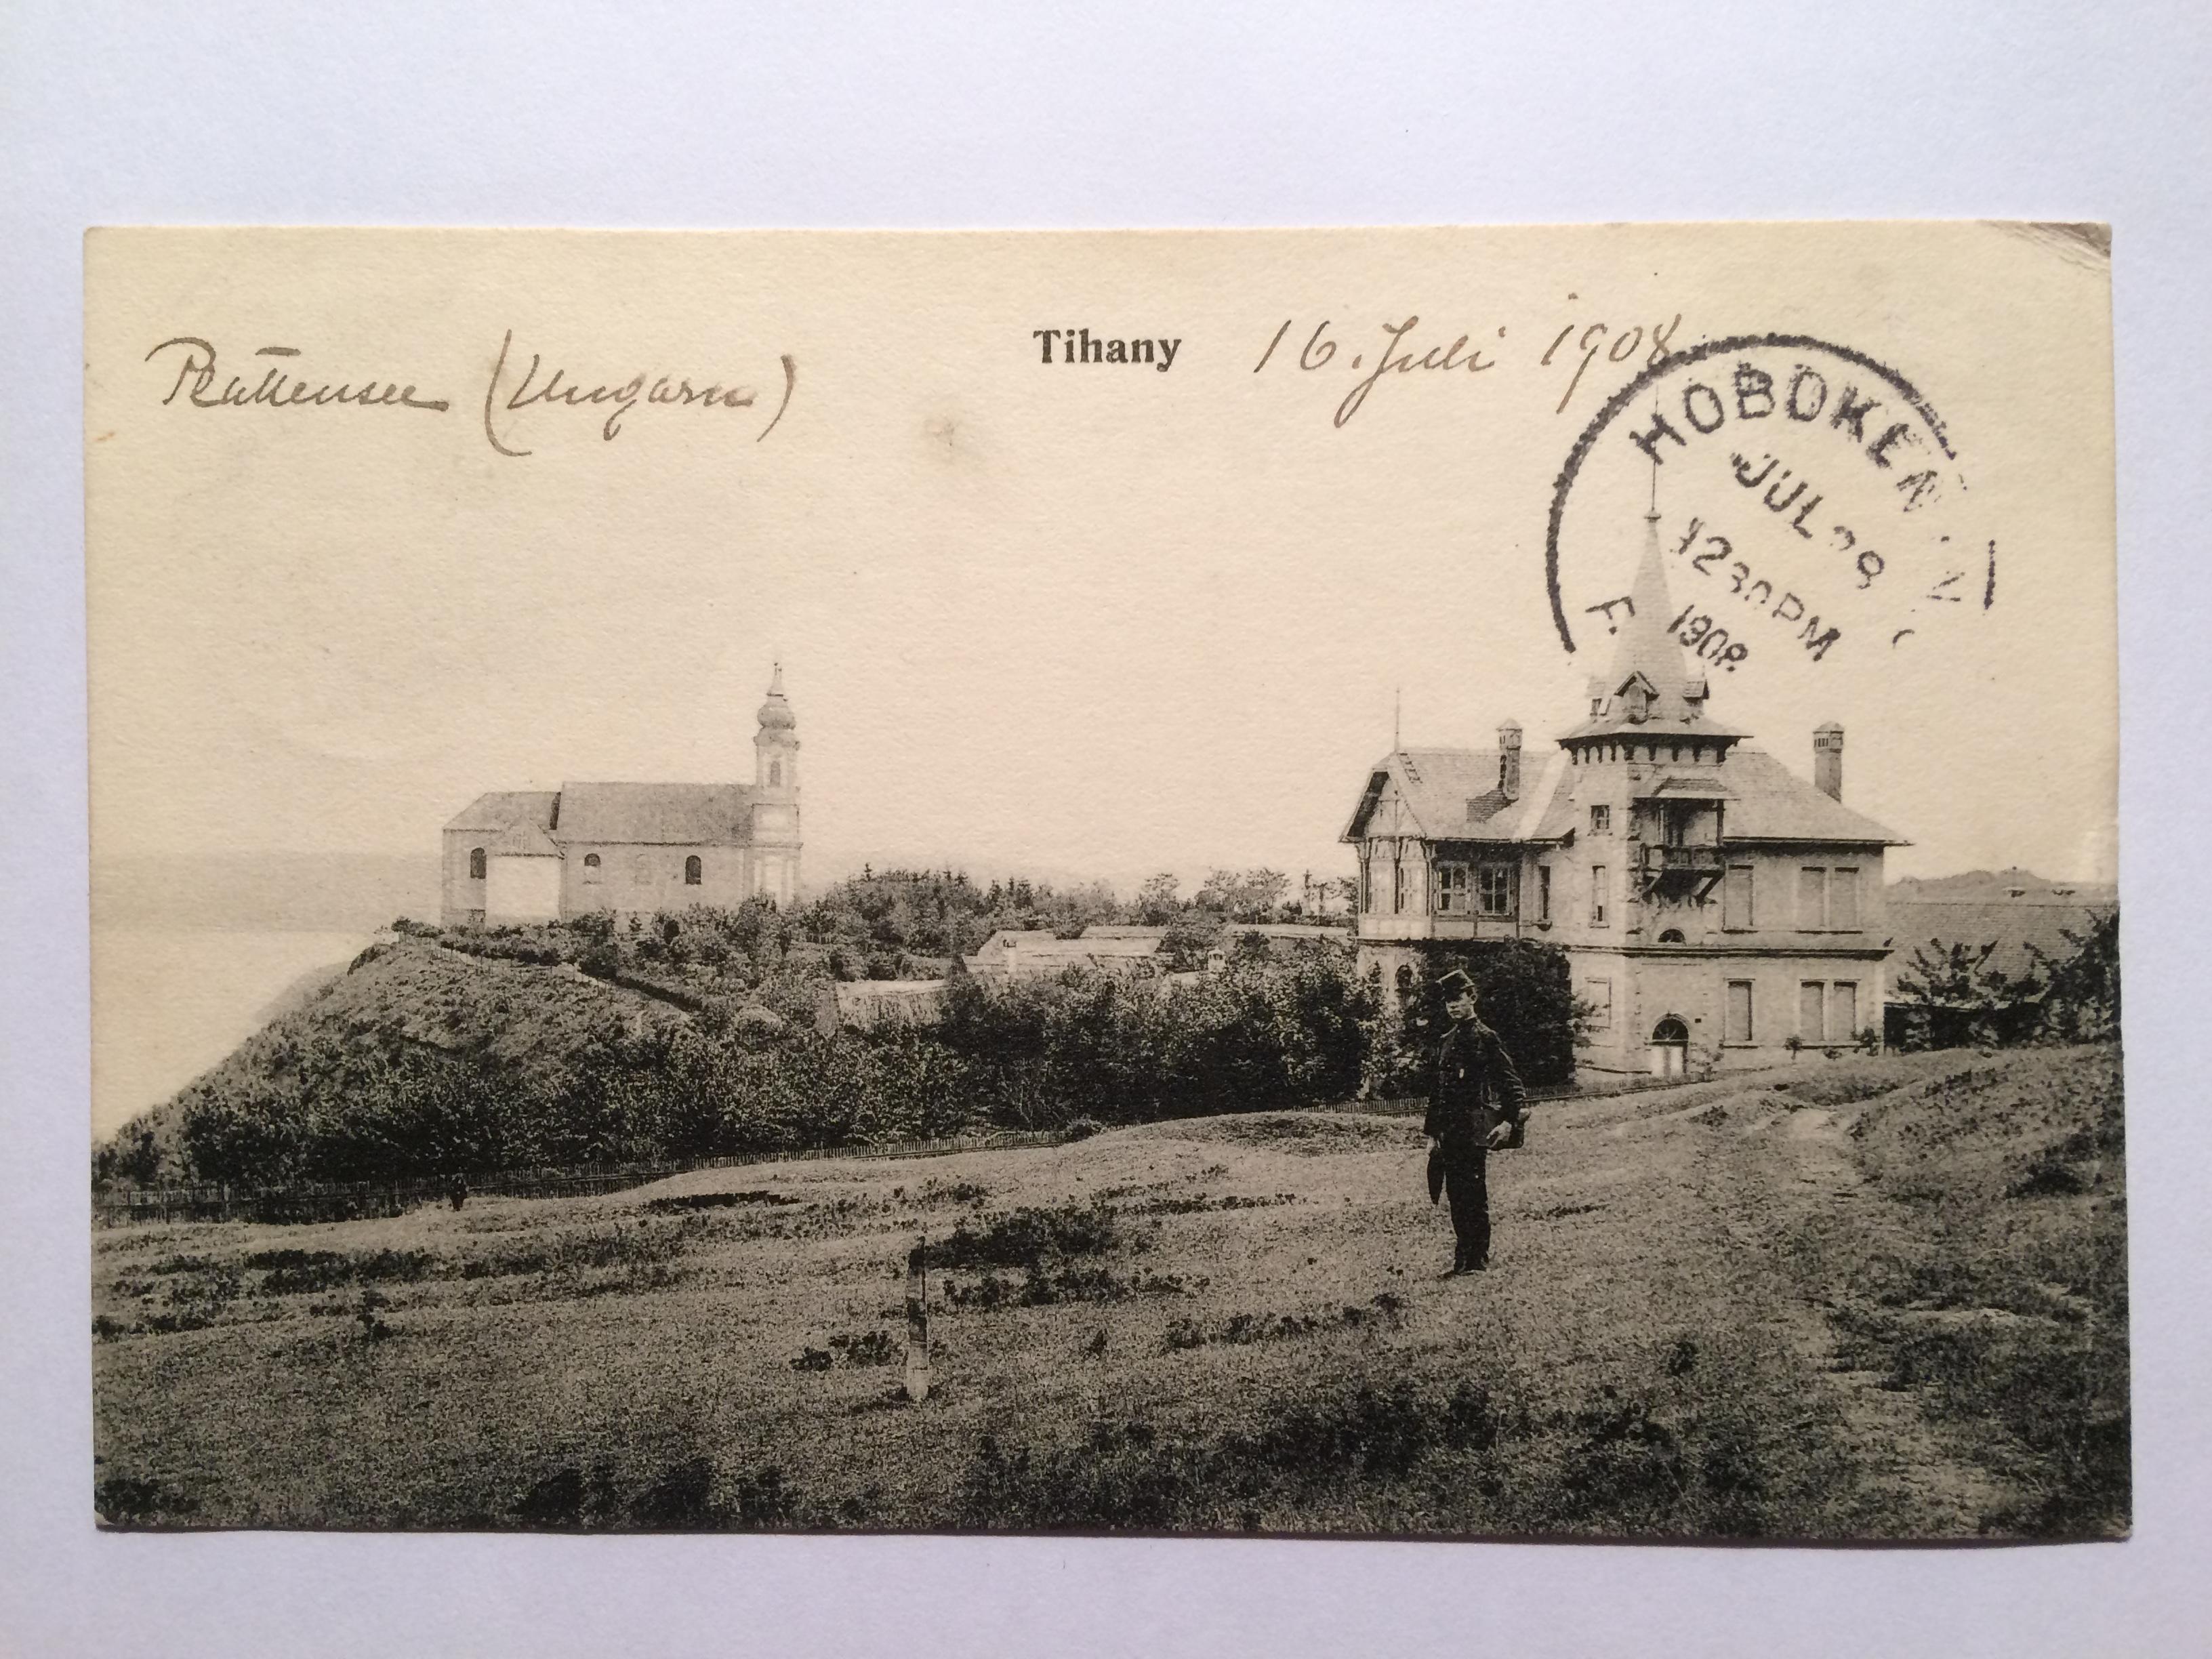 Plattensee (Ungarn)
Tihany
16. Juli 1908
HOBOKEN, N
JUL 28
12 30 PM
1908